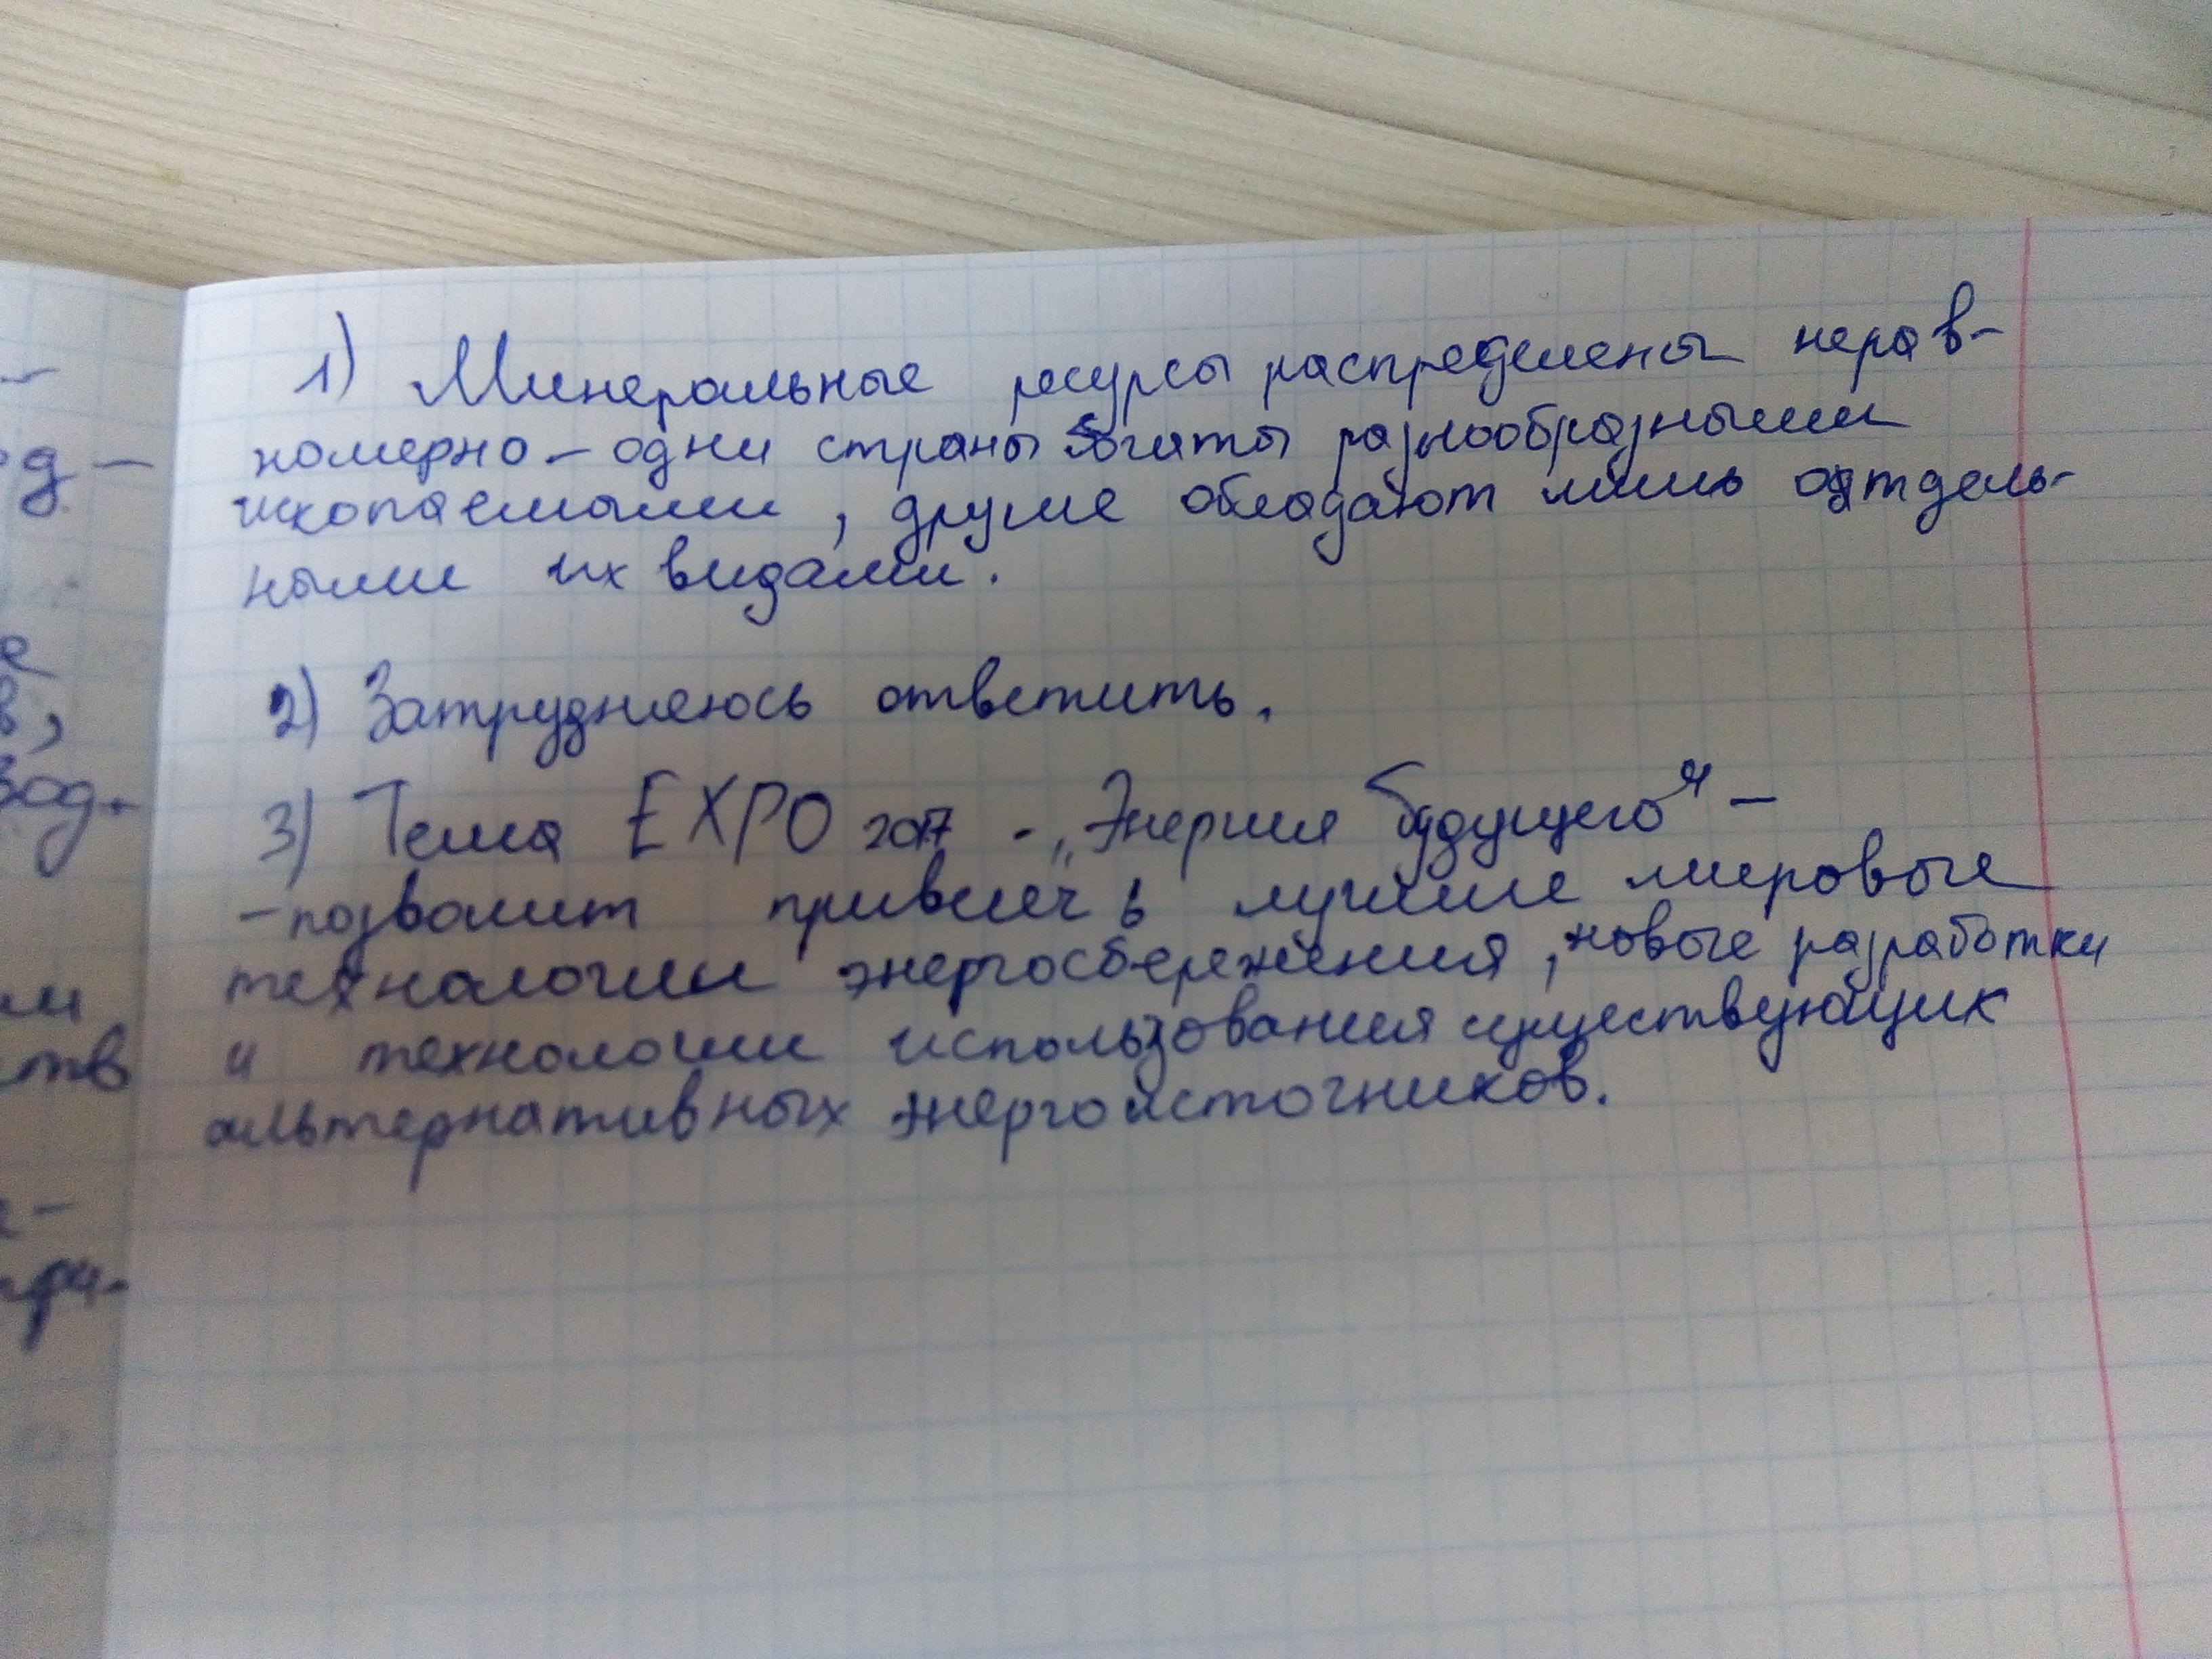 1) Минеральные ресурсы распределены нерав-
номерно – одни страны богаты разнообразными
ископаемыми, другие обладают лишь отдель-
ными их видами.
2) Затрудняюсь ответить.
3) Тема EXPO 2017 - „Энергия будущего" –
– позволит привлечь лучшие мировые
технологии энергосбережения, новые разработки
и технологии использования существующих
альтернативных энергоисточников.